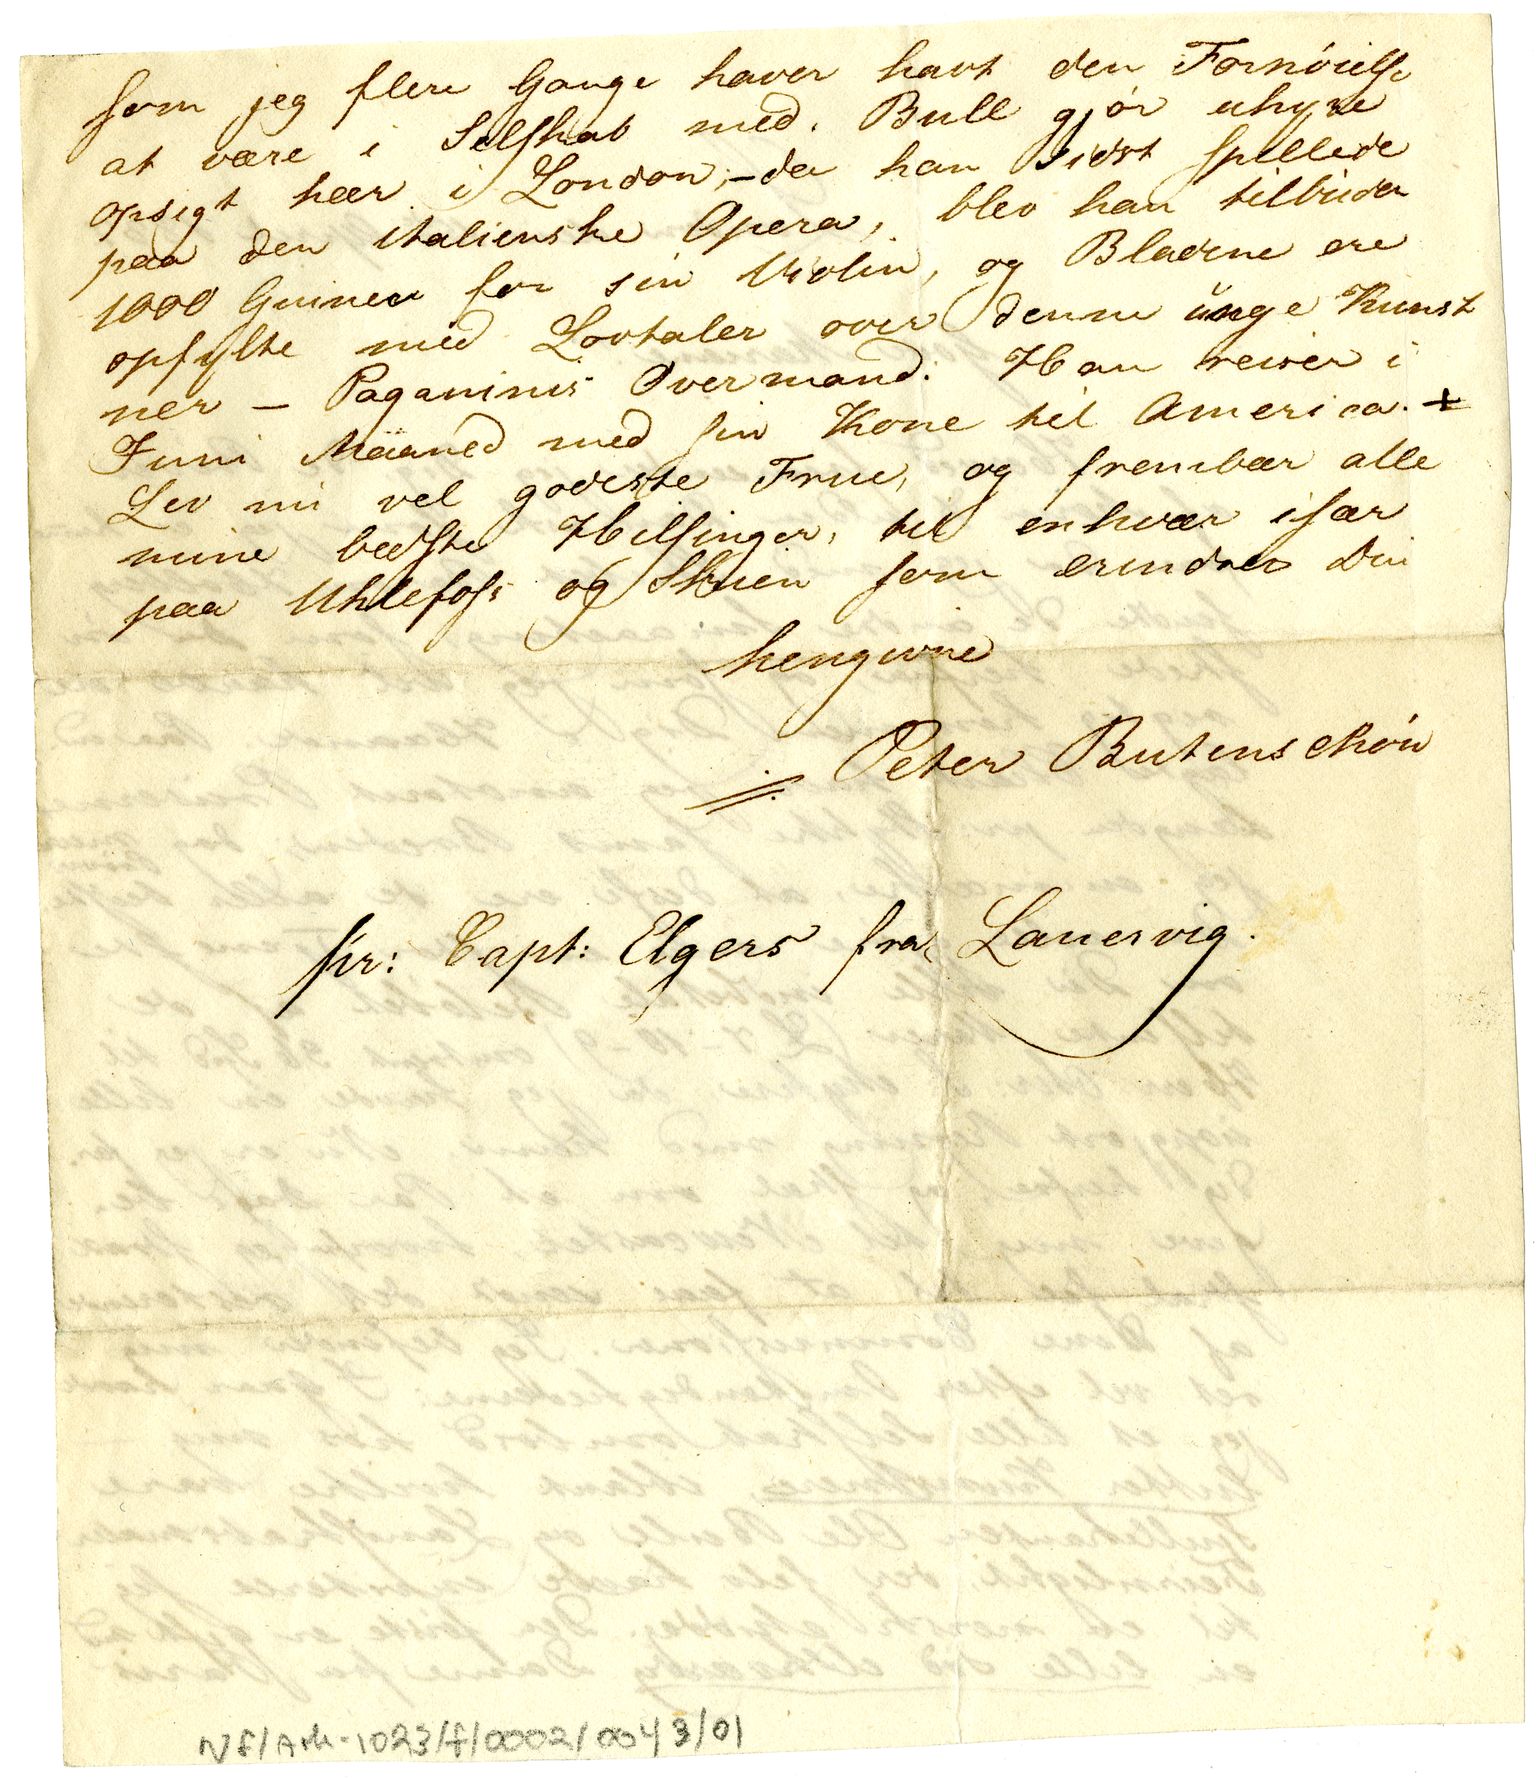 som jeg flere Gange haver havt den Fornóielse
at være i Selskab med. Bull gjór uhyre
opsigt hær i London, – da han sidst spillede
paa den italienske Opera, blev han tilbuden
1000 Guineer for sin Violin, og Bladene ere
opfylte med Lovtaler over denne unge Kunst
ner – Paganinis Overmand. Han reiser i
Juni Maaned med sin Kone til America. +
Lev nu vel godeste Frue, og frembær alle
mine bedste Hilsinger, til enhvær især
paa Uhlefoss og Skien som erindres Din
hengivne
Peter Butenschón
pr: Capt: Elgers fra Laurvig.
Nf/Ark-1023/f/0002/0043/01